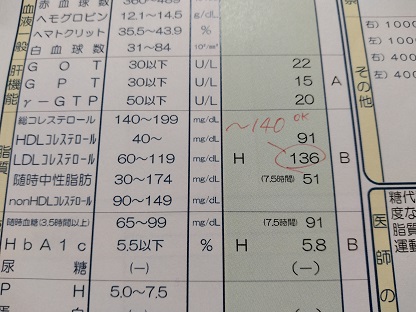 赤血球数 360~489
ヘモグロビン 12.1~14.5 g/dL
ヘマトクリット 35.5~43.9 %
白血球数 31~84
GOT 30以下 U/L 22
GPT 30以下 U/L 15 A
γ-GTP 50以下 U/L 20
総コレステロール 140~199 mg/dL ~140 OK
HDLコレステロール 40~ mg/dL 91
LDLコレステロール 60~119 mg/dL H 136 B
随時中性脂肪 30~174 mg/dL (7.5時間) 51
nonHDLコレステロール 90~149 mg/dL
随時血糖(3.5時間以上) 65~99 mg/dL (7.5時間) 91
HbA1c 5.5以下 % H 5.8 B
尿糖 (-) (-)
PH 5.0~7.5
血液一般
肝機能
脂質
その他
右) 1000
左) 1000
右) 400
左) 400
医師の
糖代
度方
脂質
運動